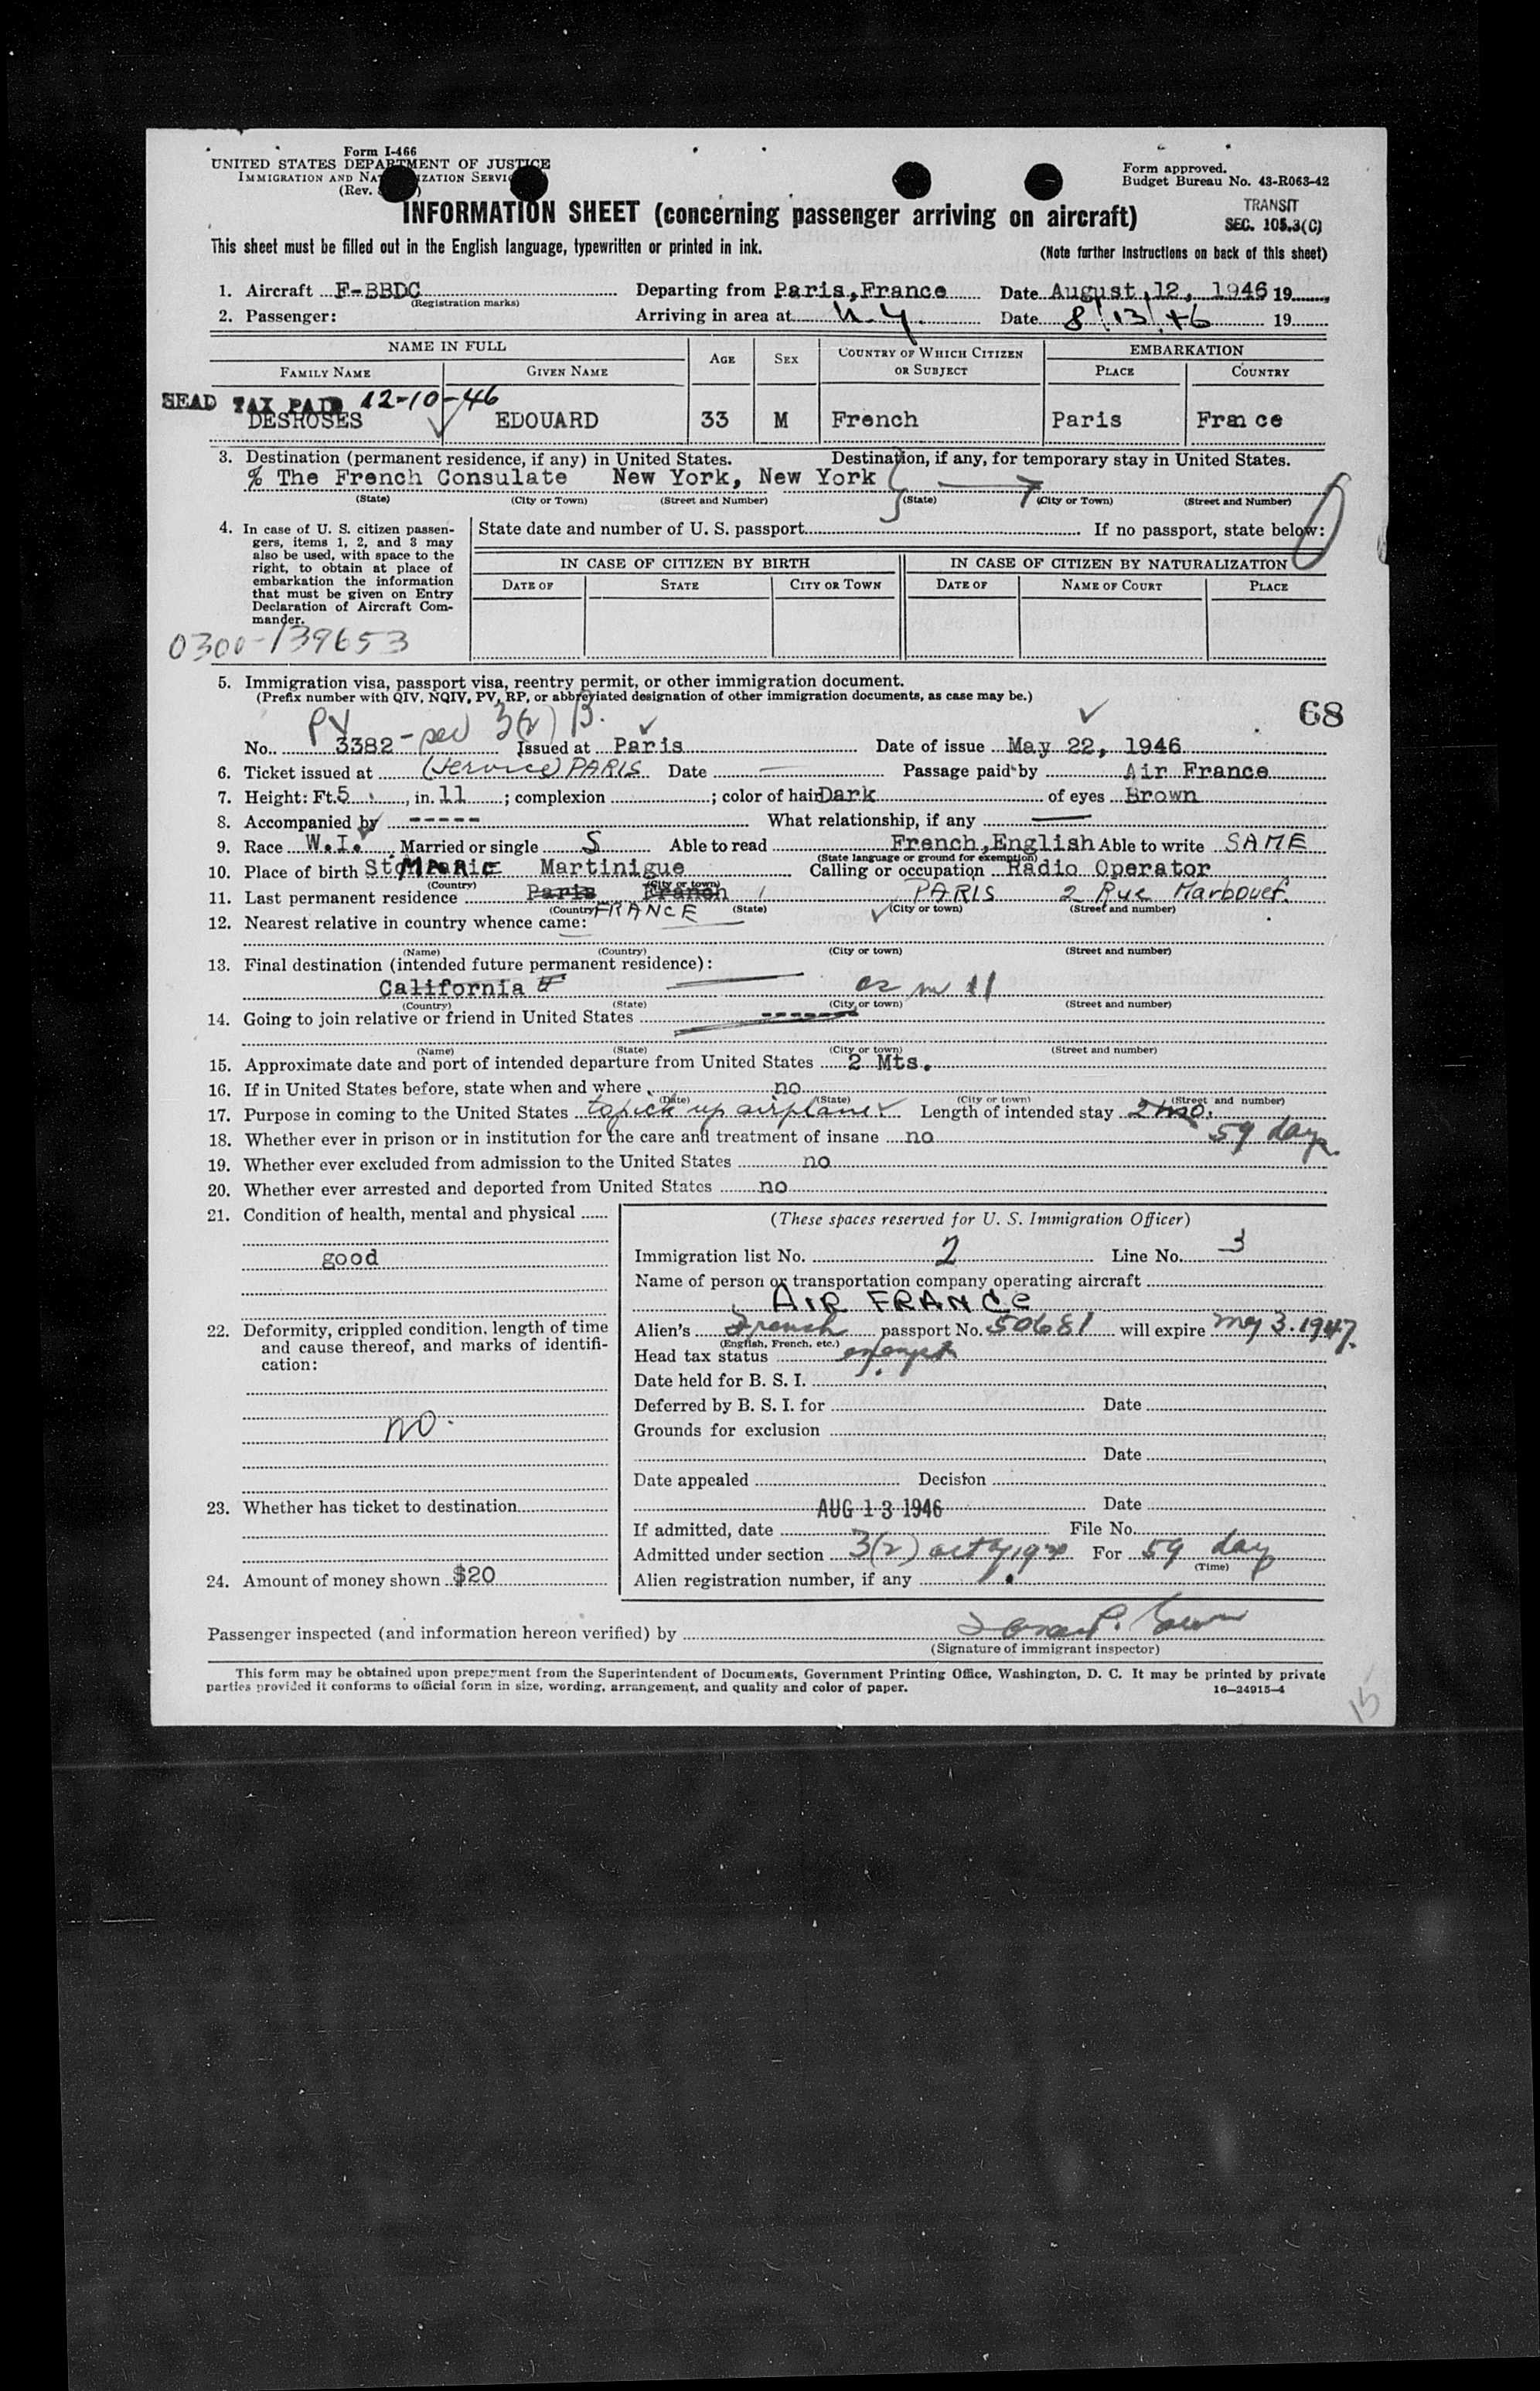 Form I-466
UNITED STATES DEPARTMENT OF JUSTICE
IMMIGRATION AND NATURALIZATION SERVICE
(Rev.
Form approved.
Budget Bureau No. 43-R063-42
INFORMATION SHEET (concerning passenger arriving on aircraft)
TRANSIT
SEC. 105.3(C)
This sheet must be filled out in the English language, typewritten or printed in ink.
(Note further instructions on back of this sheet)
1. Aircraft F-BBDC Departing from Paris, France Date August 12, 1946 19
(Registration marks)
2. Passenger: Arriving in area at N.Y. Date 8/13/46 19
NAME IN FULL AGE SEX COUNTRY OF WHICH CITIZEN OR SUBJECT EMBARKATION
FAMILY NAME GIVEN NAME PLACE COUNTRY
HEAD TAX PAID 12-10-46
DESROSES EDOUARD 33 M French Paris France
3. Destination (permanent residence, if any) in United States. Destination, if any, for temporary stay in United States.
% The French Consulate New York, New York
(State) (City or Town) (Street and Number) (State) (City or Town) (Street and Number)
4. In case of U. S. citizen passengers, items 1, 2, and 3 may also be used, with space to the right, to obtain at place of embarkation the information that must be given on Entry Declaration of Aircraft Commander.
State date and number of U. S. passport If no passport, state below:
IN CASE OF CITIZEN BY BIRTH IN CASE OF CITIZEN BY NATURALIZATION
DATE OF STATE CITY OR TOWN DATE OF NAME OF COURT PLACE
0300-139653
5. Immigration visa, passport visa, reentry permit, or other immigration document.
(Prefix number with QIV, NQIV, PV, RP, or abbreviated designation of other immigration documents, as case may be.)
68
PV 3(2) B.
No. 3382 Issued at Paris Date of issue May 22, 1946
6. Ticket issued at (Service) PARIS Date — Passage paid by Air France
7. Height: Ft. 5, in. 11; complexion ; color of hair Dark of eyes Brown
8. Accompanied by ----- What relationship, if any —
9. Race W.I. Married or single S Able to read French, English Able to write SAME
(State language or ground for exemption)
10. Place of birth St MARIE Martinigue Calling or occupation Radio Operator
(Country) (City or town)
11. Last permanent residence Paris French PARIS 2 Rue Marbouef.
(Country) FRANCE (State) (City or town) (Street and number)
12. Nearest relative in country whence came:
(Name) (Country) (City or town) (Street and number)
13. Final destination (intended future permanent residence):
California
(Country) (State) (City or town) (Street and number)
14. Going to join relative or friend in United States -------
(Name) (State) (City or town) (Street and number)
15. Approximate date and port of intended departure from United States 2 Mts.
16. If in United States before, state when and where no
(Date) (State) (City or town) (Street and number)
17. Purpose in coming to the United States to pick up airplane Length of intended stay 2 mo.
59 days
18. Whether ever in prison or in institution for the care and treatment of insane no
19. Whether ever excluded from admission to the United States no
20. Whether ever arrested and deported from United States no
21. Condition of health, mental and physical
good
22. Deformity, crippled condition, length of time and cause thereof, and marks of identification:
no.
23. Whether has ticket to destination
24. Amount of money shown $20
(These spaces reserved for U. S. Immigration Officer)
Immigration list No. 2 Line No. 3
Name of person or transportation company operating aircraft
AIR FRANCE
Alien's French passport No. 50681 will expire May 3. 1947.
(English, French, etc.)
Head tax status exempt
Date held for B. S. I.
Deferred by B. S. I. for Date
Grounds for exclusion
Date
Date appealed Decision
AUG 13 1946 Date
If admitted, date File No.
Admitted under section 3(2) act of 1924 For 59 days
(Time)
Alien registration number, if any
Passenger inspected (and information hereon verified) by
(Signature of immigrant inspector)
This form may be obtained upon prepayment from the Superintendent of Documents, Government Printing Office, Washington, D. C. It may be printed by private
parties provided it conforms to official form in size, wording, arrangement, and quality and color of paper.
16—24915-4
15